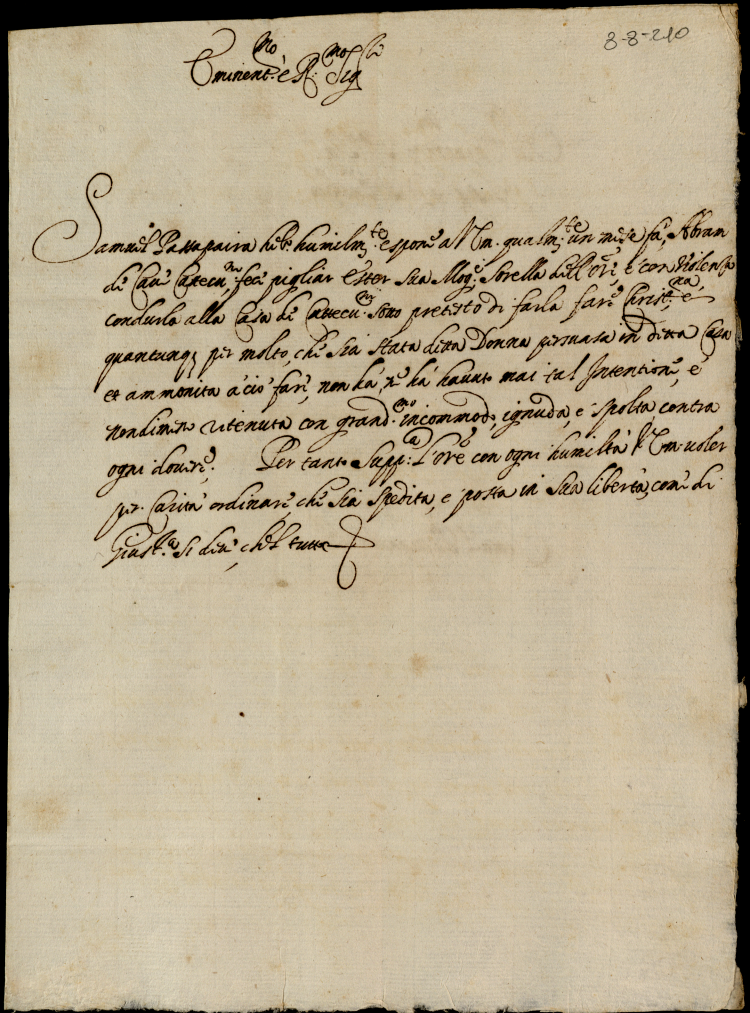 8-8-210
Eminent.mo è R.mo Sig.re
Samuel Passapaira heb.o humilm.te espone a V. Em. qualm.te un mese fà, Abram
di Cave Catecu.no fece pigliar Ester sua Mog.e Sorella dell'Ore, è con violenza
condurla alla Casa de Catecu.ni sotto pretesto di farla fare Christ.na, è
quantunq; per molto, che sia stata detta Donna persuasa in detta Casa
et ammonita à ciò fare, non hà, ne hà havuto mai tal Intentione, è
nondimeno ritenuta con grand.mo incommodo, ignuda, e spolta contra
ogni dovere. Per tanto supp.a l'Ore con ogni humiltà V. Em. voler
per Carità ordinare, che sia spedita, e posta in sua libertà, come di
Giust.a si deve, che 'l tutto